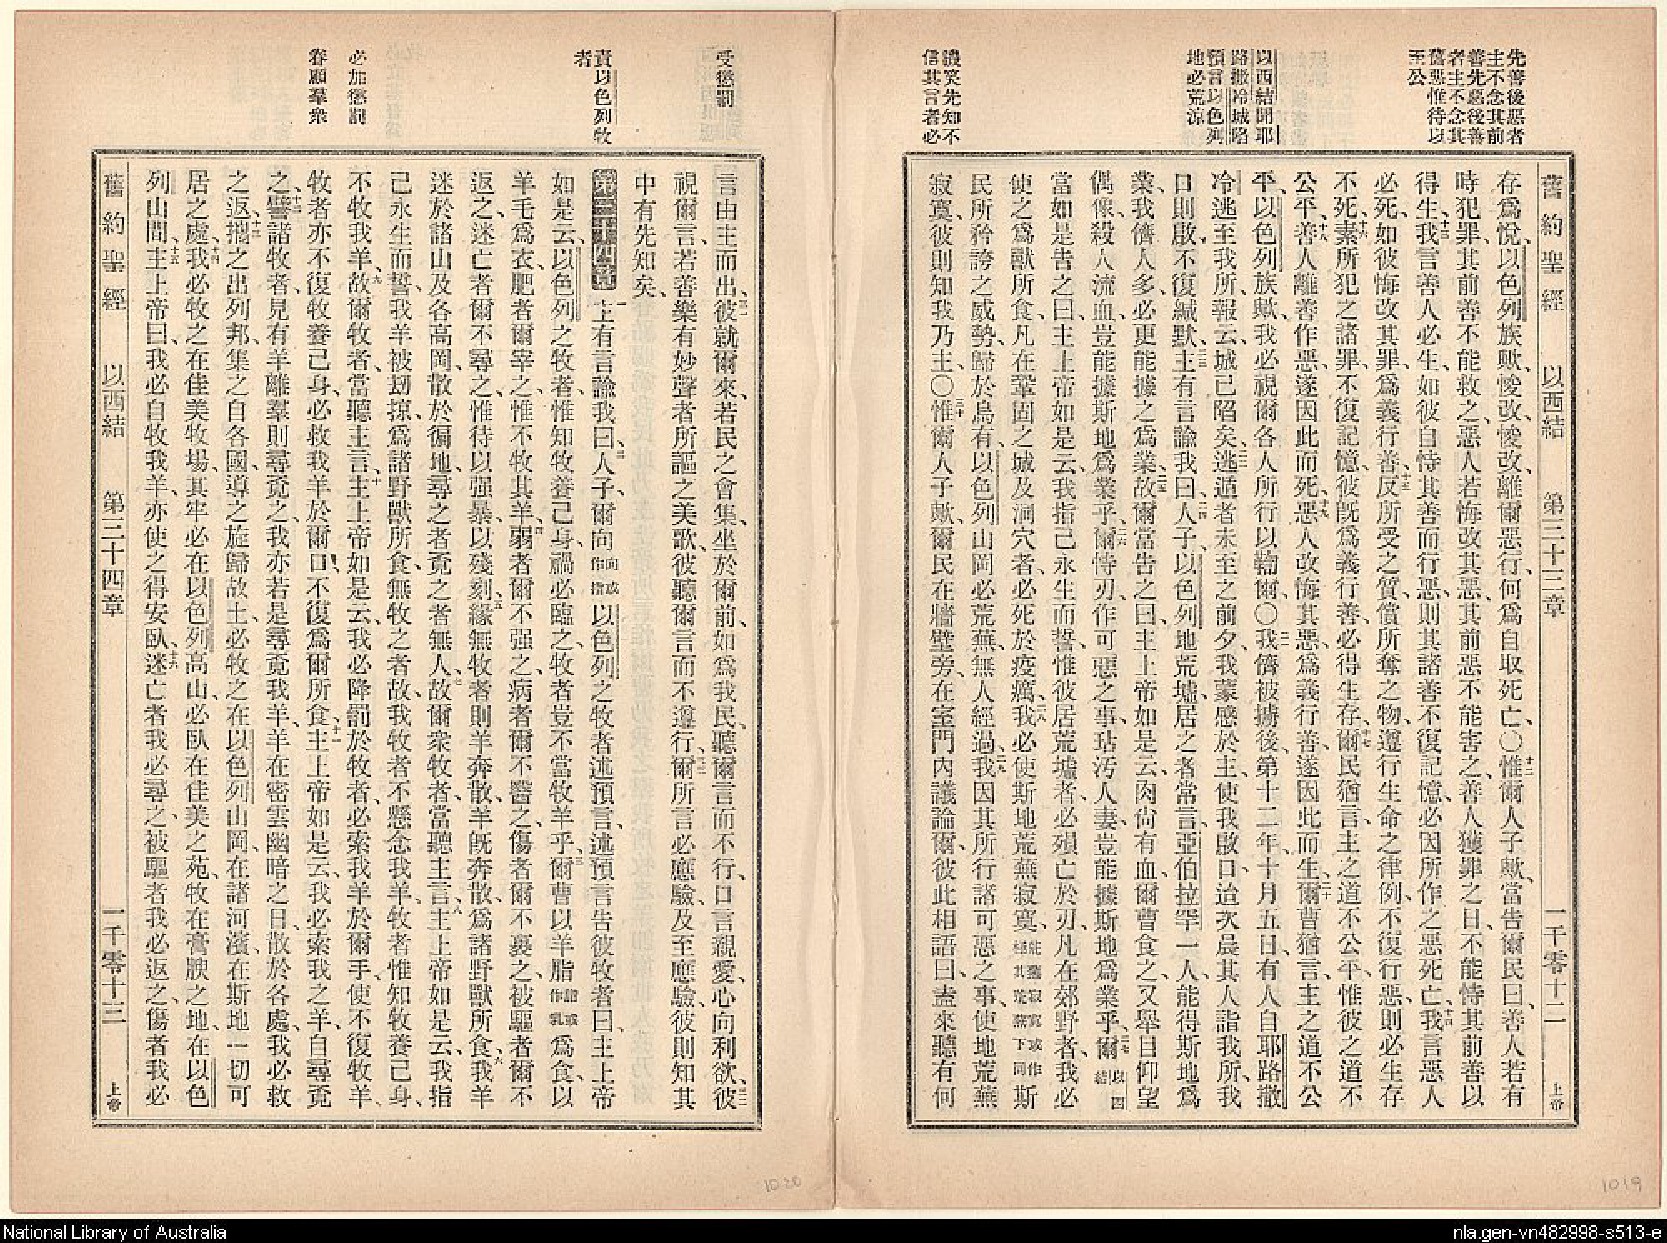 先善後惡者
主不念其前
善先惡後善
者主不念其
舊惡惟待以
至公
以西結聞耶
路撒冷城陷
預言以色列
地必荒涼
譏笑先知不
信其言者必
舊約聖經 以西結 第三十三章 一千零十二 上帝
存爲悅、以色列族歟、悛改、悛改、離爾惡行、何爲自取死亡、〇十二惟爾人子歟、當告爾民曰、善人若有
時犯罪、其前善不能救之、惡人若悔改其惡、其前惡不能害之、善人獲罪之日、不能恃其前善以
得生、十三我言善人必生、如彼自恃其善而行惡、則其諸善不復記憶、必因所作之惡死亡、十四我言惡人
必死、如彼悔改其罪、爲義行善、十五反所受之質、償所奪之物、遵行生命之律例、不復行惡、則必生存
不死、十六素所犯之諸罪、不復記憶、彼旣爲義行善、必得生存、十七爾民猶言、主之道不公平、惟彼之道不
公平、十八善人離善作惡、遂因此而死、十九惡人改悔其惡、爲義行善、遂因此而生、二十爾曹猶言、主之道不公
平、以色列族歟、我必視爾各人所行以鞫爾、〇二一我儕被擄後、第十二年十月五日、有人自耶路撒
冷逃至我所、報云、城已陷矣、二二逃遁者未至之前夕、我蒙感於主、使我啟口、迨次晨其人詣我所、我
口則啟、不復緘默、二三主有言諭我曰、二四人子、以色列地荒墟居之者常言、亞伯拉罕一人、能得斯地爲
業、我儕人多、必更能據之爲業、二五故爾當告之曰、主上帝如是云、肉尚有血、爾曹食之、又舉目仰望
偶像、殺人流血、豈能據斯地爲業乎、二六爾恃刃作可惡之事、玷汚人妻、豈能據斯地爲業乎、二七爾以西結
當如是告之曰、主上帝如是云、我指己永生而誓、惟彼居荒墟者、必殞亡於刃、凡在郊野者、我必
使之爲獸所食、凡在鞏固之城及洞穴者、必死於疫癘、二八我必使斯地荒蕪寂寞、斯
民所矜誇之威勢、歸於烏有、以色列山岡必荒蕪、無人經過、二九我因其所行諸可惡之事、使地荒蕪
寂寞、彼則知我乃主、〇三十惟爾人子歟、爾民在牆壁旁、在室門內議論爾、彼此相語曰、盍來聽有何
受懲罰
責以色列牧
者
必加懲罰
眷顧羣衆
言由主而出、三一彼就爾來、若民之會集、坐於爾前、如爲我民、聽爾言而不行、口言親愛、心向利欲、三二彼
視爾言、若善樂有妙聲者所謳之美歌、彼聽爾言而不遵行、三三爾所言必應驗、及至應驗、彼則知其
中有先知矣、
第三十四章 一主有言諭我曰、二人子、爾向向或作指以色列之牧者述預言、述預言告彼牧者曰、主上帝
如是云、以色列之牧者、惟知牧養己身、禍必臨之、牧者豈不當牧羊乎、三爾曹以羊脂脂或作乳爲食、以
羊毛爲衣、肥者爾宰之、惟不牧其羊、四弱者爾不强之、病者爾不醫之、傷者爾不裹之、被驅者爾不
返之、迷亡者爾不尋之、惟待以强暴、以殘刻、五緣無牧者、則羊奔散、羊旣奔散、爲諸野獸所食、六我羊
迷於諸山及各高岡、散於徧地、尋之者、覔之者無人、七故爾衆牧者、當聽主言、八主上帝如是云、我指
己永生而誓、我羊被刧掠、爲諸野獸所食、無牧之者、故我牧者不懸念我羊、牧者惟知牧養己身、
不牧我羊、九故爾牧者、當聽主言、十主上帝如是云、我必降罰於牧者、必索我羊於爾手、使不復牧羊、
牧者亦不復牧養己身、必救我羊於爾口、不復爲爾所食、十一主上帝如是云、我必索我之羊、自尋覔
之、十二譬諸牧者、見有羊離羣、則尋覔之、我亦若是尋覔我羊、羊在密雲幽暗之日、散於各處、我必救
之返、十三攜之出列邦、集之自各國、導之旋歸故土、必牧之在以色列山岡、在諸河濱、在斯地一切可
居之處、十四我必牧之在佳美牧場、其牢必在以色列高山、必臥在佳美之苑、牧在膏腴之地、在以色
列山間、十五主上帝曰、我必自牧我羊、亦使之得安臥、十六迷亡者我必尋之、被驅者我必返之、傷者我必
舊約聖經 以西結 第三十四章 一千零十三 上帝
1020
1019
National Library of Australia
nla.gen-vn482998-s513-e